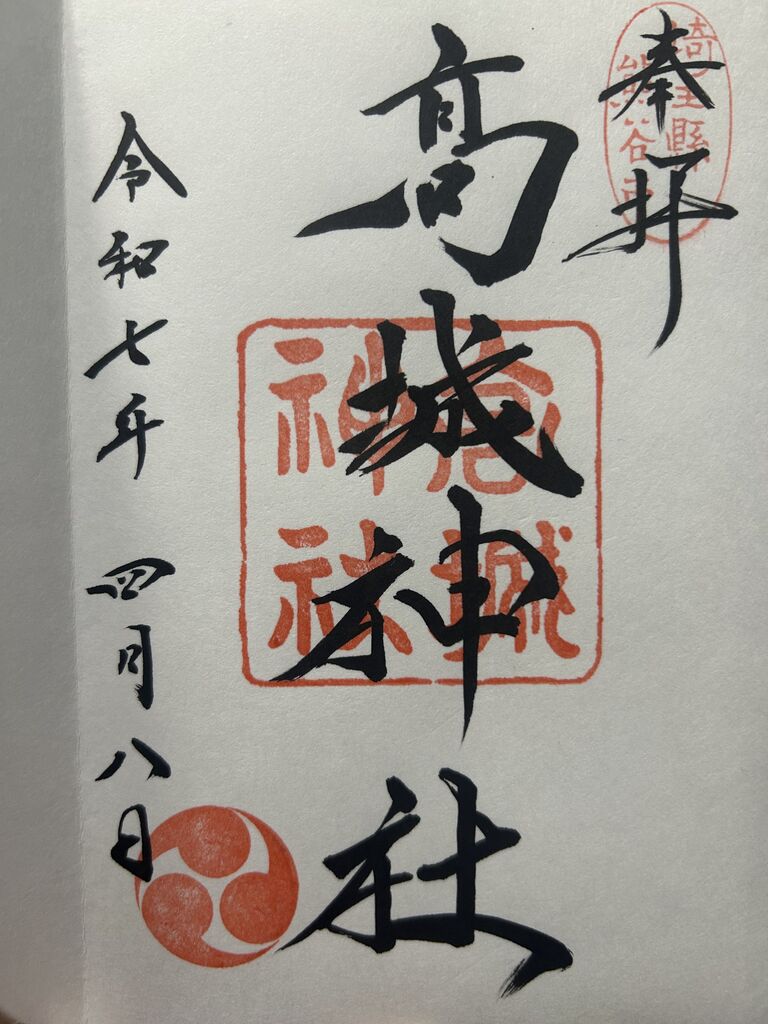 奉拝
埼玉縣
熊谷市
高城神社
高城
神社
令和七年 四月八日